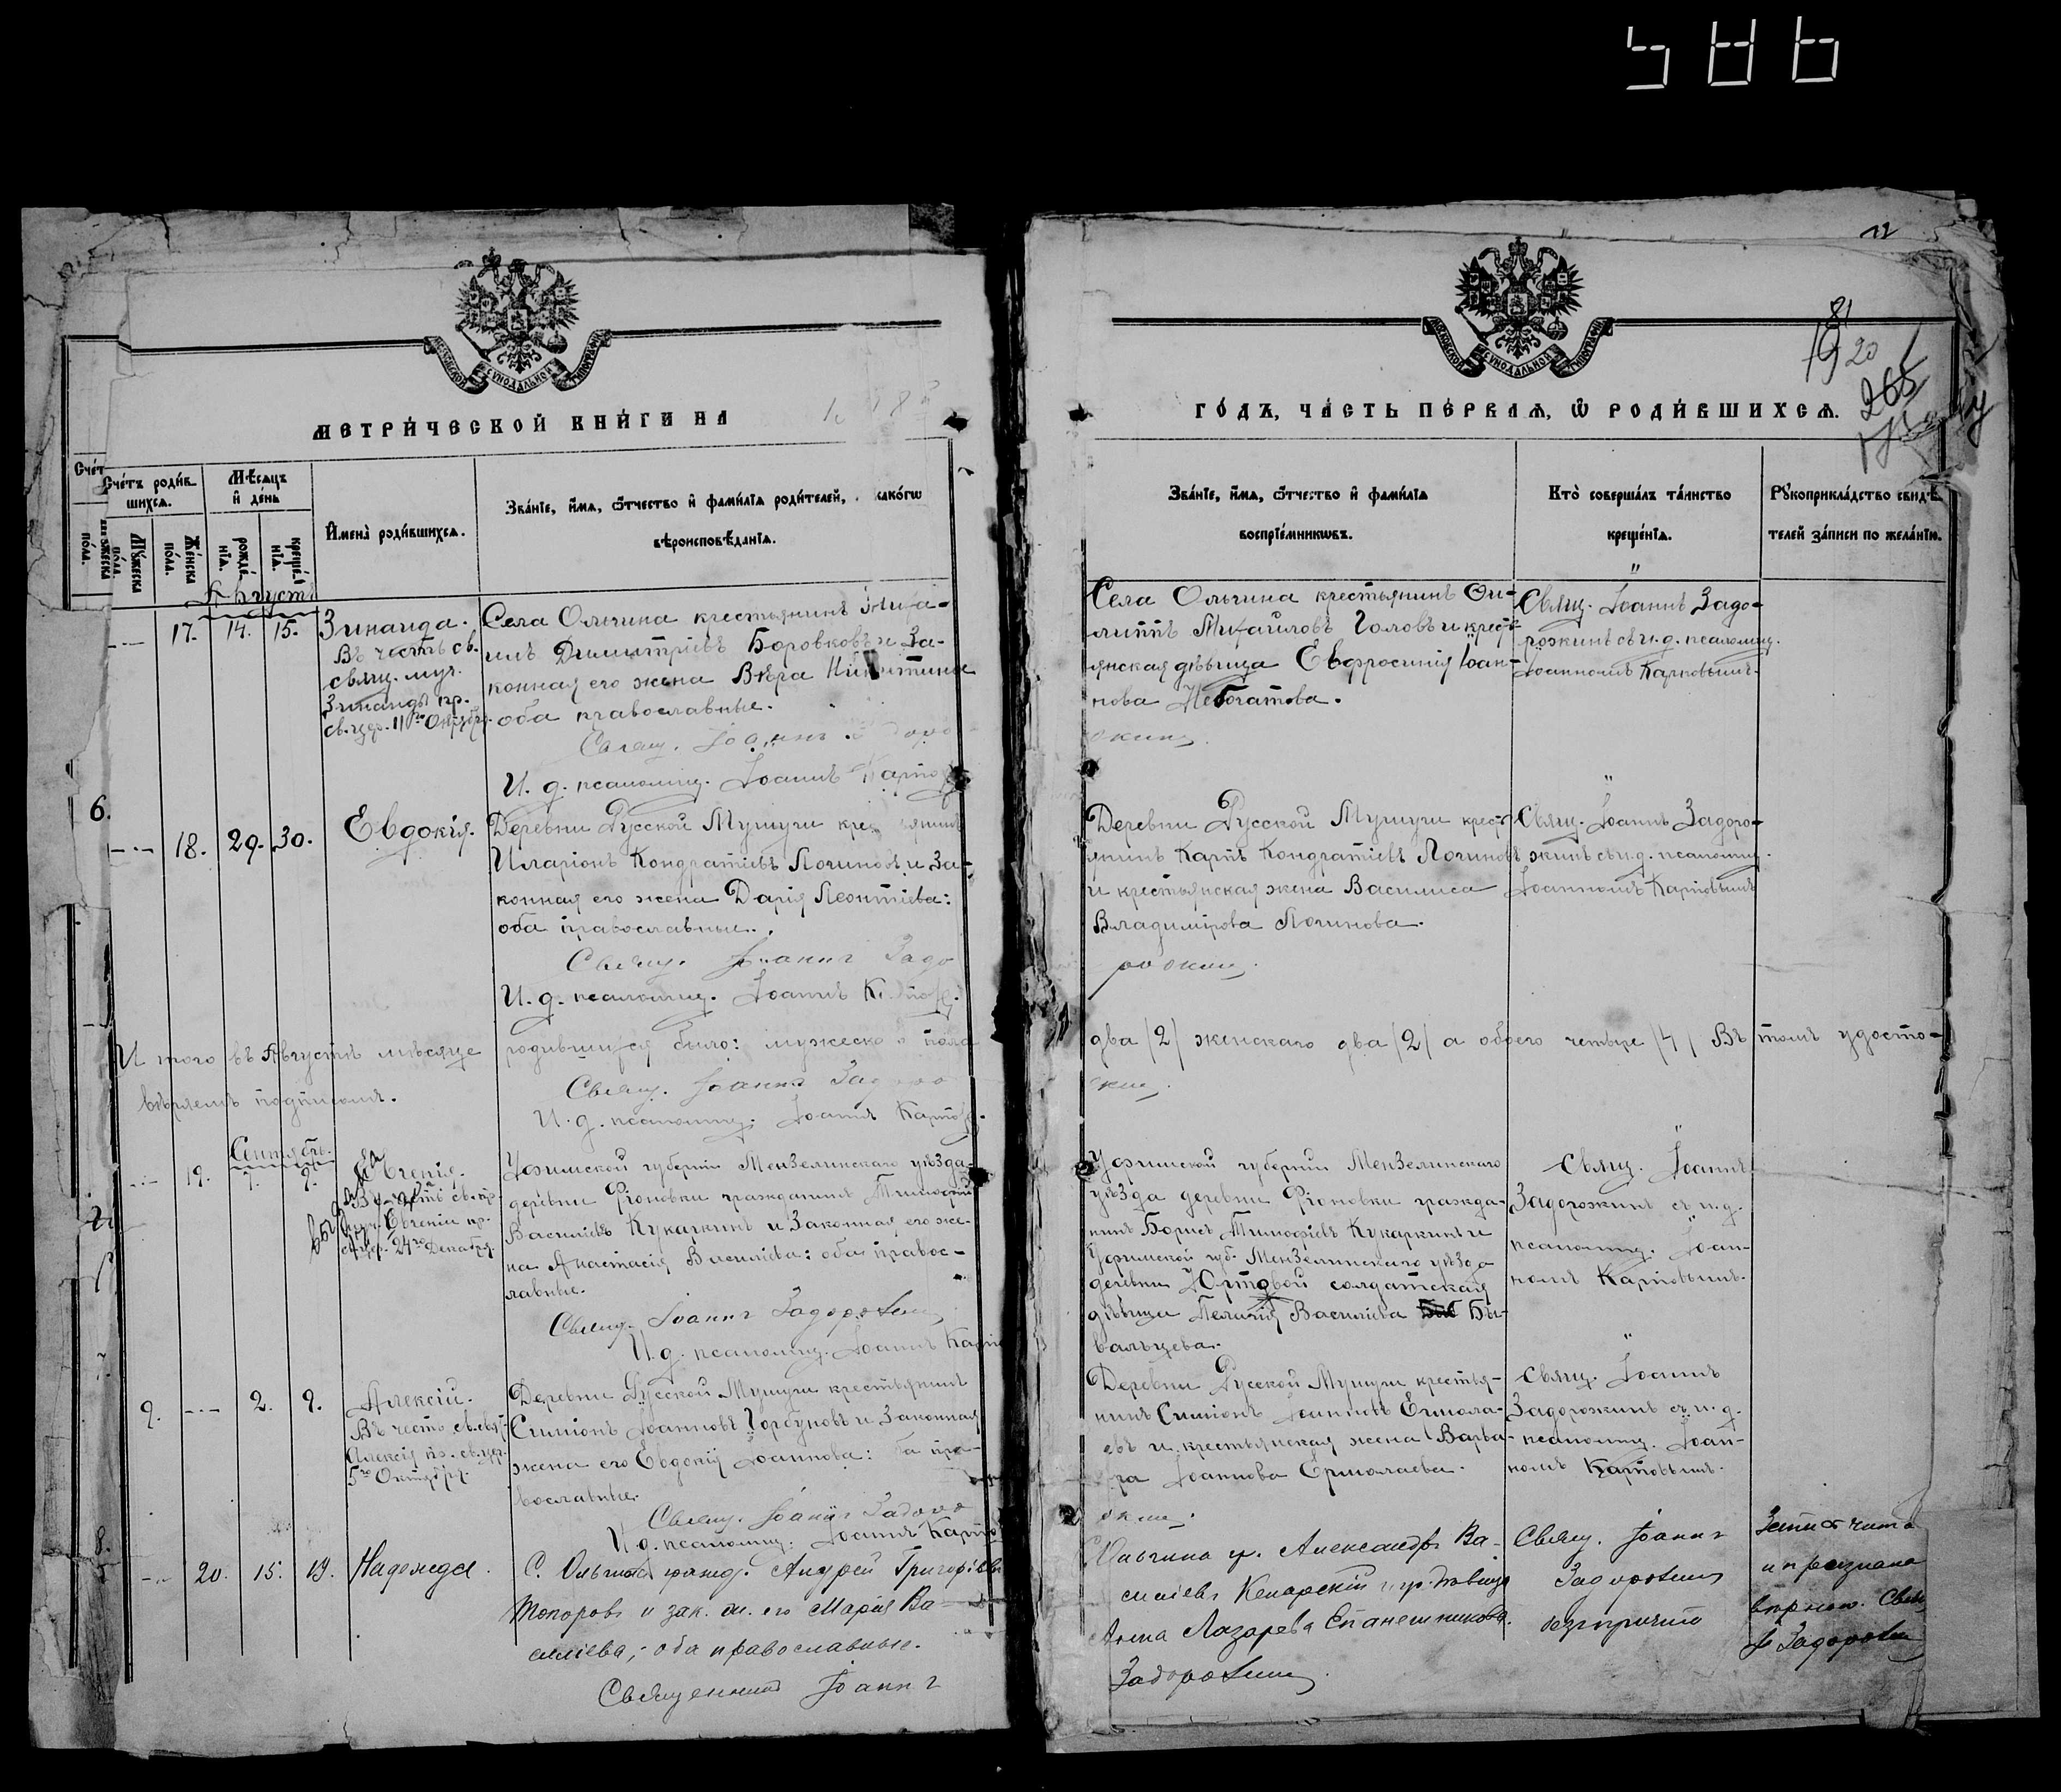 586
МОСКОВСКОЙ СѴНОДАЛЬНОЙ ТИПОГРАФІИ
МЕТРИ́ЧЕСКОЙ КНИ́ГИ НА
Сче́тъ роди́в
шихсѧ.
Мѣ́сѧцъ
и҆ де́нь
Му́жеска по́ла.
Же́нска по́ла.
рожде́нїѧ.
креще́нїѧ.
И҆мена̀ роди́вшихсѧ.
Зва́нїе, и҆́мѧ, ѻ҆́тчество и҆ фами́лїѧ роди́телей, како́гѡ
вѣроисповѣ́данїѧ.
Августъ
17. 14. 15.
Зинаида.
Въ честь св.
свящ. муч.
Зинаиды пр.
св. цер. 11го Октября.
Села Ольгина крестьянинъ Миха-
илъ Димитріевъ Боровковъ и За-
конная его жена Вѣра Никитина
оба православные.
Свящ. Іоаннъ
И. д. псаломщ. Іоаннъ Карпов
6.
18. 29. 30.
Евдокія.
Деревни Русской Мушуги
Иларіонъ Кондратіевъ Логиновъ и За-
конная его жена Дарія Леонтіева:
оба православные.
Свящ. Іоаннъ Задо
И. д. псаломщ. Іоаннъ
И того въ Августѣ мѣсяце родившихся было: мужеско пола
вѣряемъ подписомъ.
Свящ. Іоаннъ Задоро
И. д. псаломщ. Іоаннъ Карпов.
Сентябрь.
19. 7. 9.
Евгенія.
Въ честь св. пр.
муч. Евгеніи пр.
св. цер. 24го Декабря.
Уфимской губерніи Мензелинскаго уѣзда
деревни Ріоновки гражданинъ Тимофей
Василіевъ Кукаркинъ и Законная его же-
на Анастасія Василіева: оба правос-
лавные.
Свящ. Іоаннъ Задорожин
И. д. псаломщ. Іоаннъ Карпо
9. 2. 9.
Алексій.
Въ честь св. свят.
Алексія пр. св. цер.
5го Октября.
Деревни Русской Мушуги крестьянинъ
Симіонъ Іоанновъ Горбуновъ и Законная
жена его Евдокія Іоаннова: ба пра-
вославные.
Свящ. Іоаннъ Задоро
И. д. псаломщ. Іоаннъ Карпо
8.
20. 15. 19.
Надежда.
С. Ольгина гражд. Андрей Григоріевъ
Топоровъ и зак. ж. его Марія Ва-
силіева; оба православные.
Священникъ Іоаннъ
12
81
19 20
265
МОСКОВСКОЙ СѴНОДАЛЬНОЙ ТИПОГРАФІИ
ГО́ДЪ, ЧА́СТЬ ПЕ́РВАѦ, Ѡ҆ РОДИ́ВШИХСѦ.
Зва́нїе, и҆́мѧ, ѻ҆́тчество и҆ фами́лїѧ
воспрїе́мникѡвъ.
Кто̀ соверша́лъ та́инство
креще́нїѧ.
Рꙋкоприкла́дство свидѣ́-
телей за́писи по жела́нїю.
Села Ольгина крестьянинъ Фи-
липпъ Михайловъ Головъ и крест-
янская дѣвица Евфросинія Іоан-
нова Небогатова.
жинъ
Свящ. Іоаннъ Задо-
рожинъ съ и. д. псаломщ.
Іоанномъ Карповымъ.
Деревни Русской Мушуги крест-
янинъ Карпъ Кондратіевъ Логиновъ
и крестьянская жена Василиса
Владимірова Логинова.
рожин
Свящ. Іоаннъ Задоро-
жинъ съ и. д. псаломщ.
Іоанномъ Карповымъ
два /2/ женскаго два /2/ а обоего четыре /4/ Въ томъ удосто-
жин.
Уфимской губерніи Мензелинскаго
уѣзда деревни Ріоновки гражда-
нинъ Борисъ Тимофіевъ Кукаркинъ и
Уфимской губ. Мензелинскаго уѣзда
деревни Юртовой солдатская
дѣвица Пелагія Василіева Бы-
вальцева.
Свящ. Іоаннъ
Задорожинъ съ и. д.
псаломщ. Іоан-
номъ Карповымъ.
Деревни Русской Мушуги крестья-
нинъ Симіонъ Іоанновъ Ермола-
евъ и крестьянская жена Варва-
ра Іоаннова Ермолаева.
жин.
Свящ. Іоаннъ
Задорожинъ съ и. д.
псаломщ. Іоан-
номъ Карповымъ.
Ольгина гр. Александръ Ва-
силіевъ Кепарскій и гр. дѣвица
Анна Лазарева Епанешникова.
Задорожин
Свящ. Іоаннъ
Задорожинъ
Запись чита
и признана
вѣрною. Свящ
І Задорожин